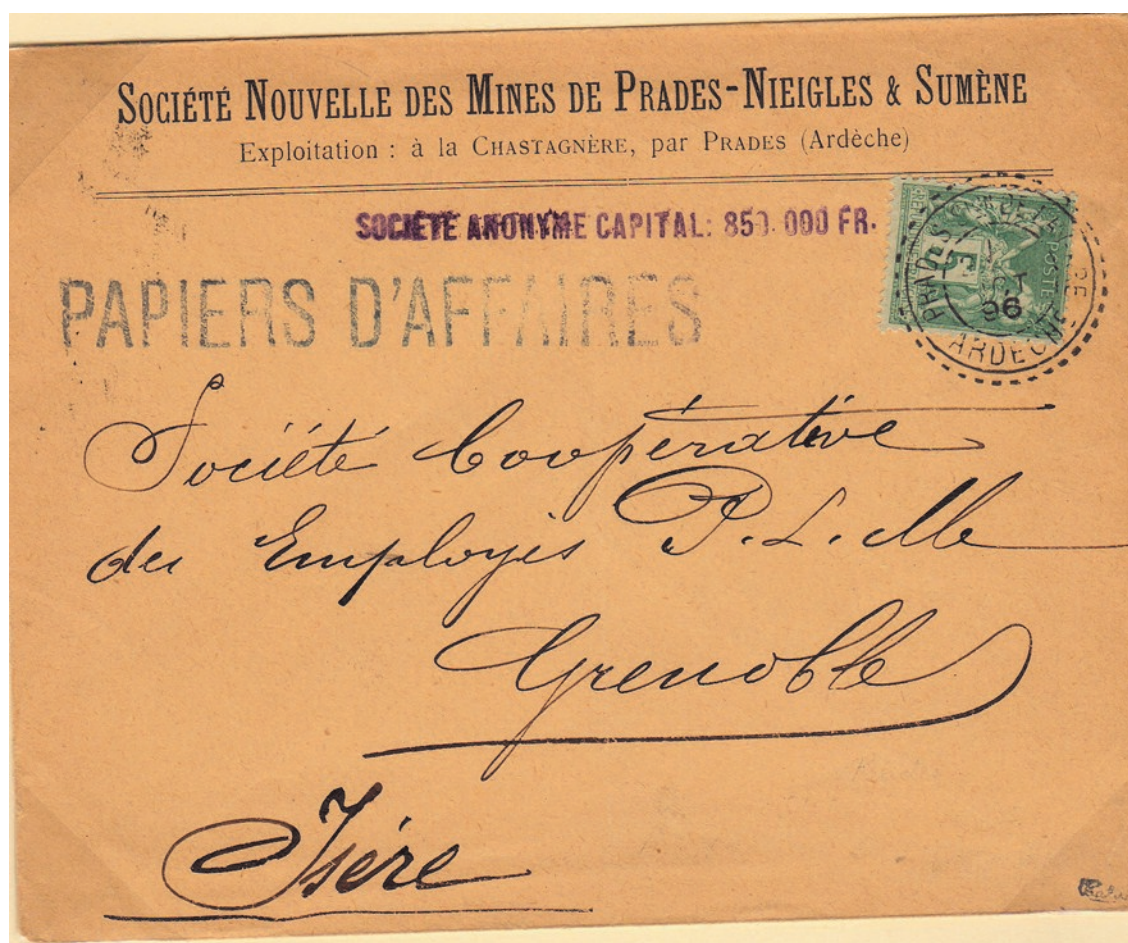 SOCIÉTÉ NOUVELLE DES MINES DE PRADES-NIEIGLES & SUMÈNE
Exploitation : à la CHASTAGNÈRE, par PRADES (Ardèche)
SOCIÉTÉ ANONYME CAPITAL: 850.000 FR.
PAPIERS D'AFFAIRES
POSTE
5
96
PRADES
ARDÈCHE
Société Coopérative
des Employés P.L.M
Grenoble
Isère